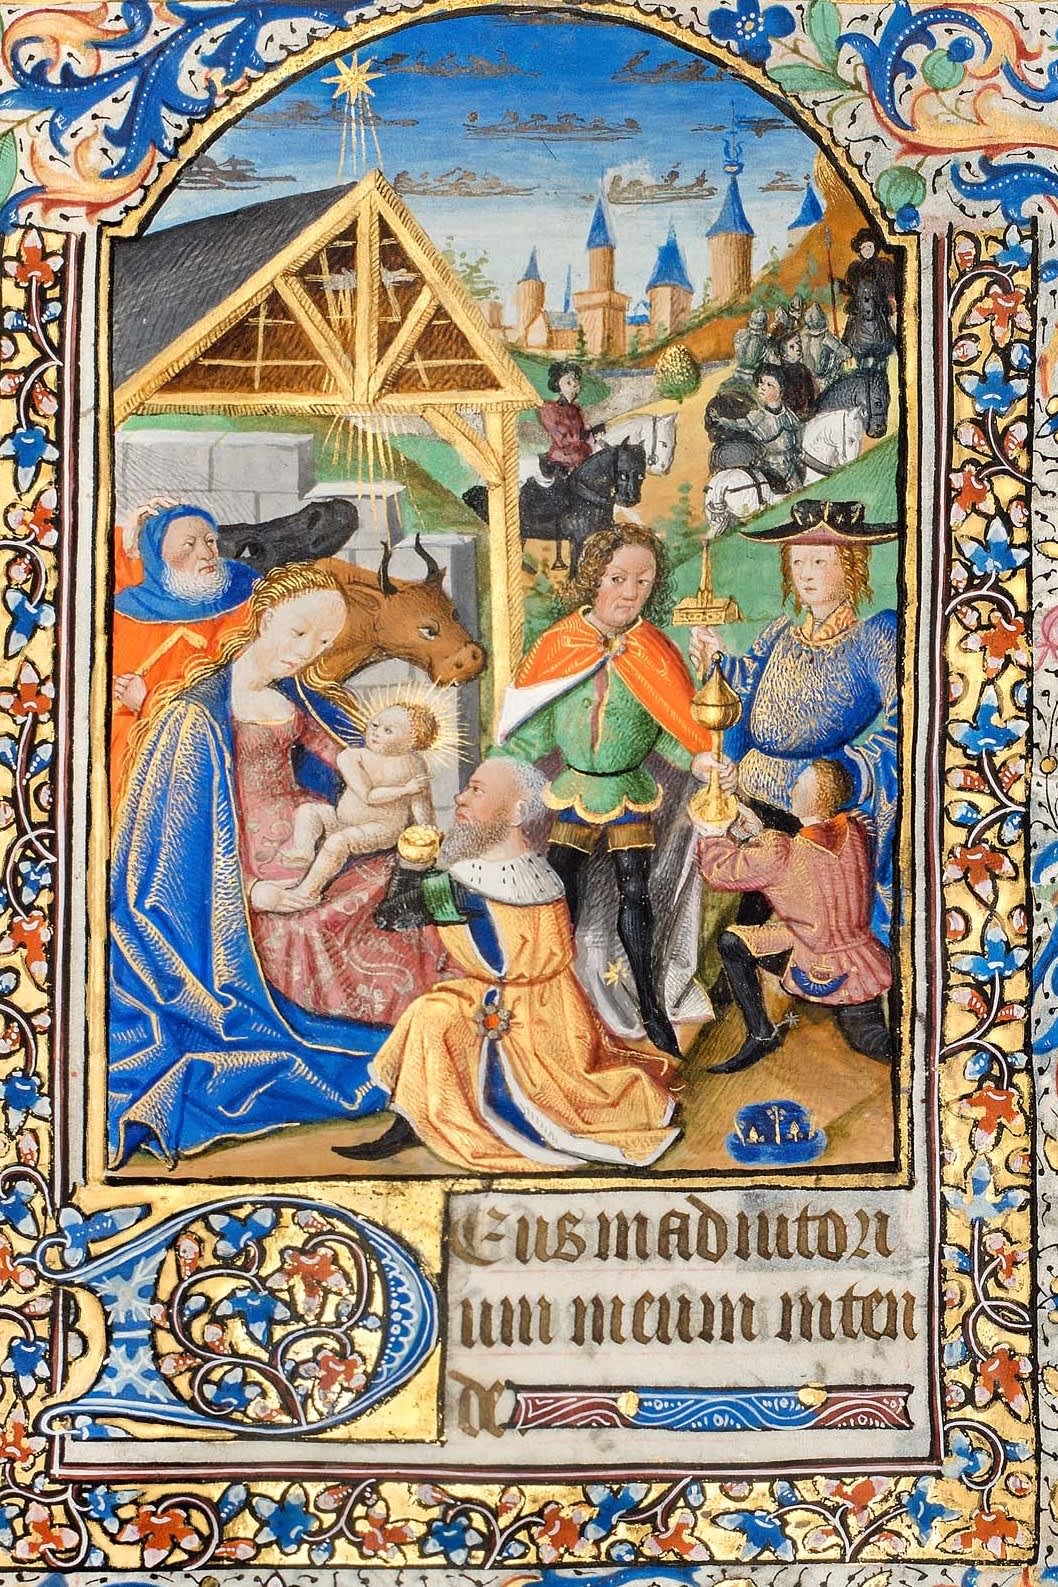 Deus in adiutori
um meum inten
de